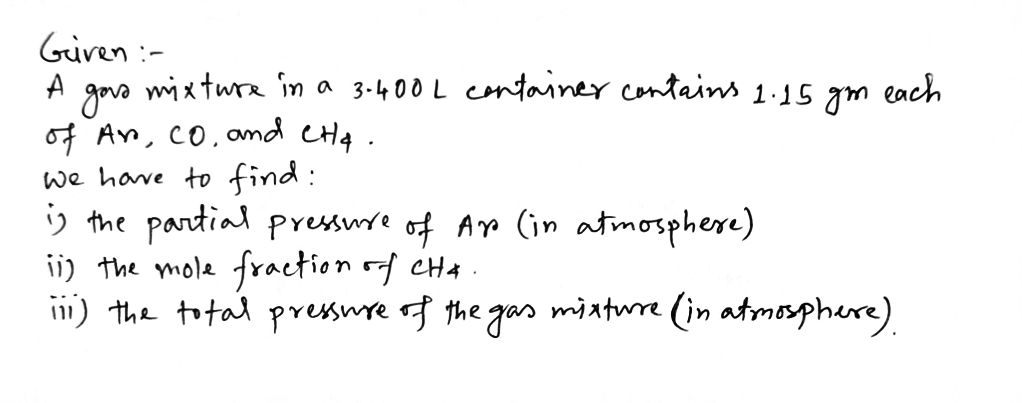 Given :-
A gas mixture in a 3.400 L container contains 1.15 gm each
of Ar, CO, and CH4 .
we have to find :
i) the partial pressure of Ar (in atmosphere)
ii) the mole fraction of CH4 .
iii) the total pressure of the gas mixture (in atmosphere).